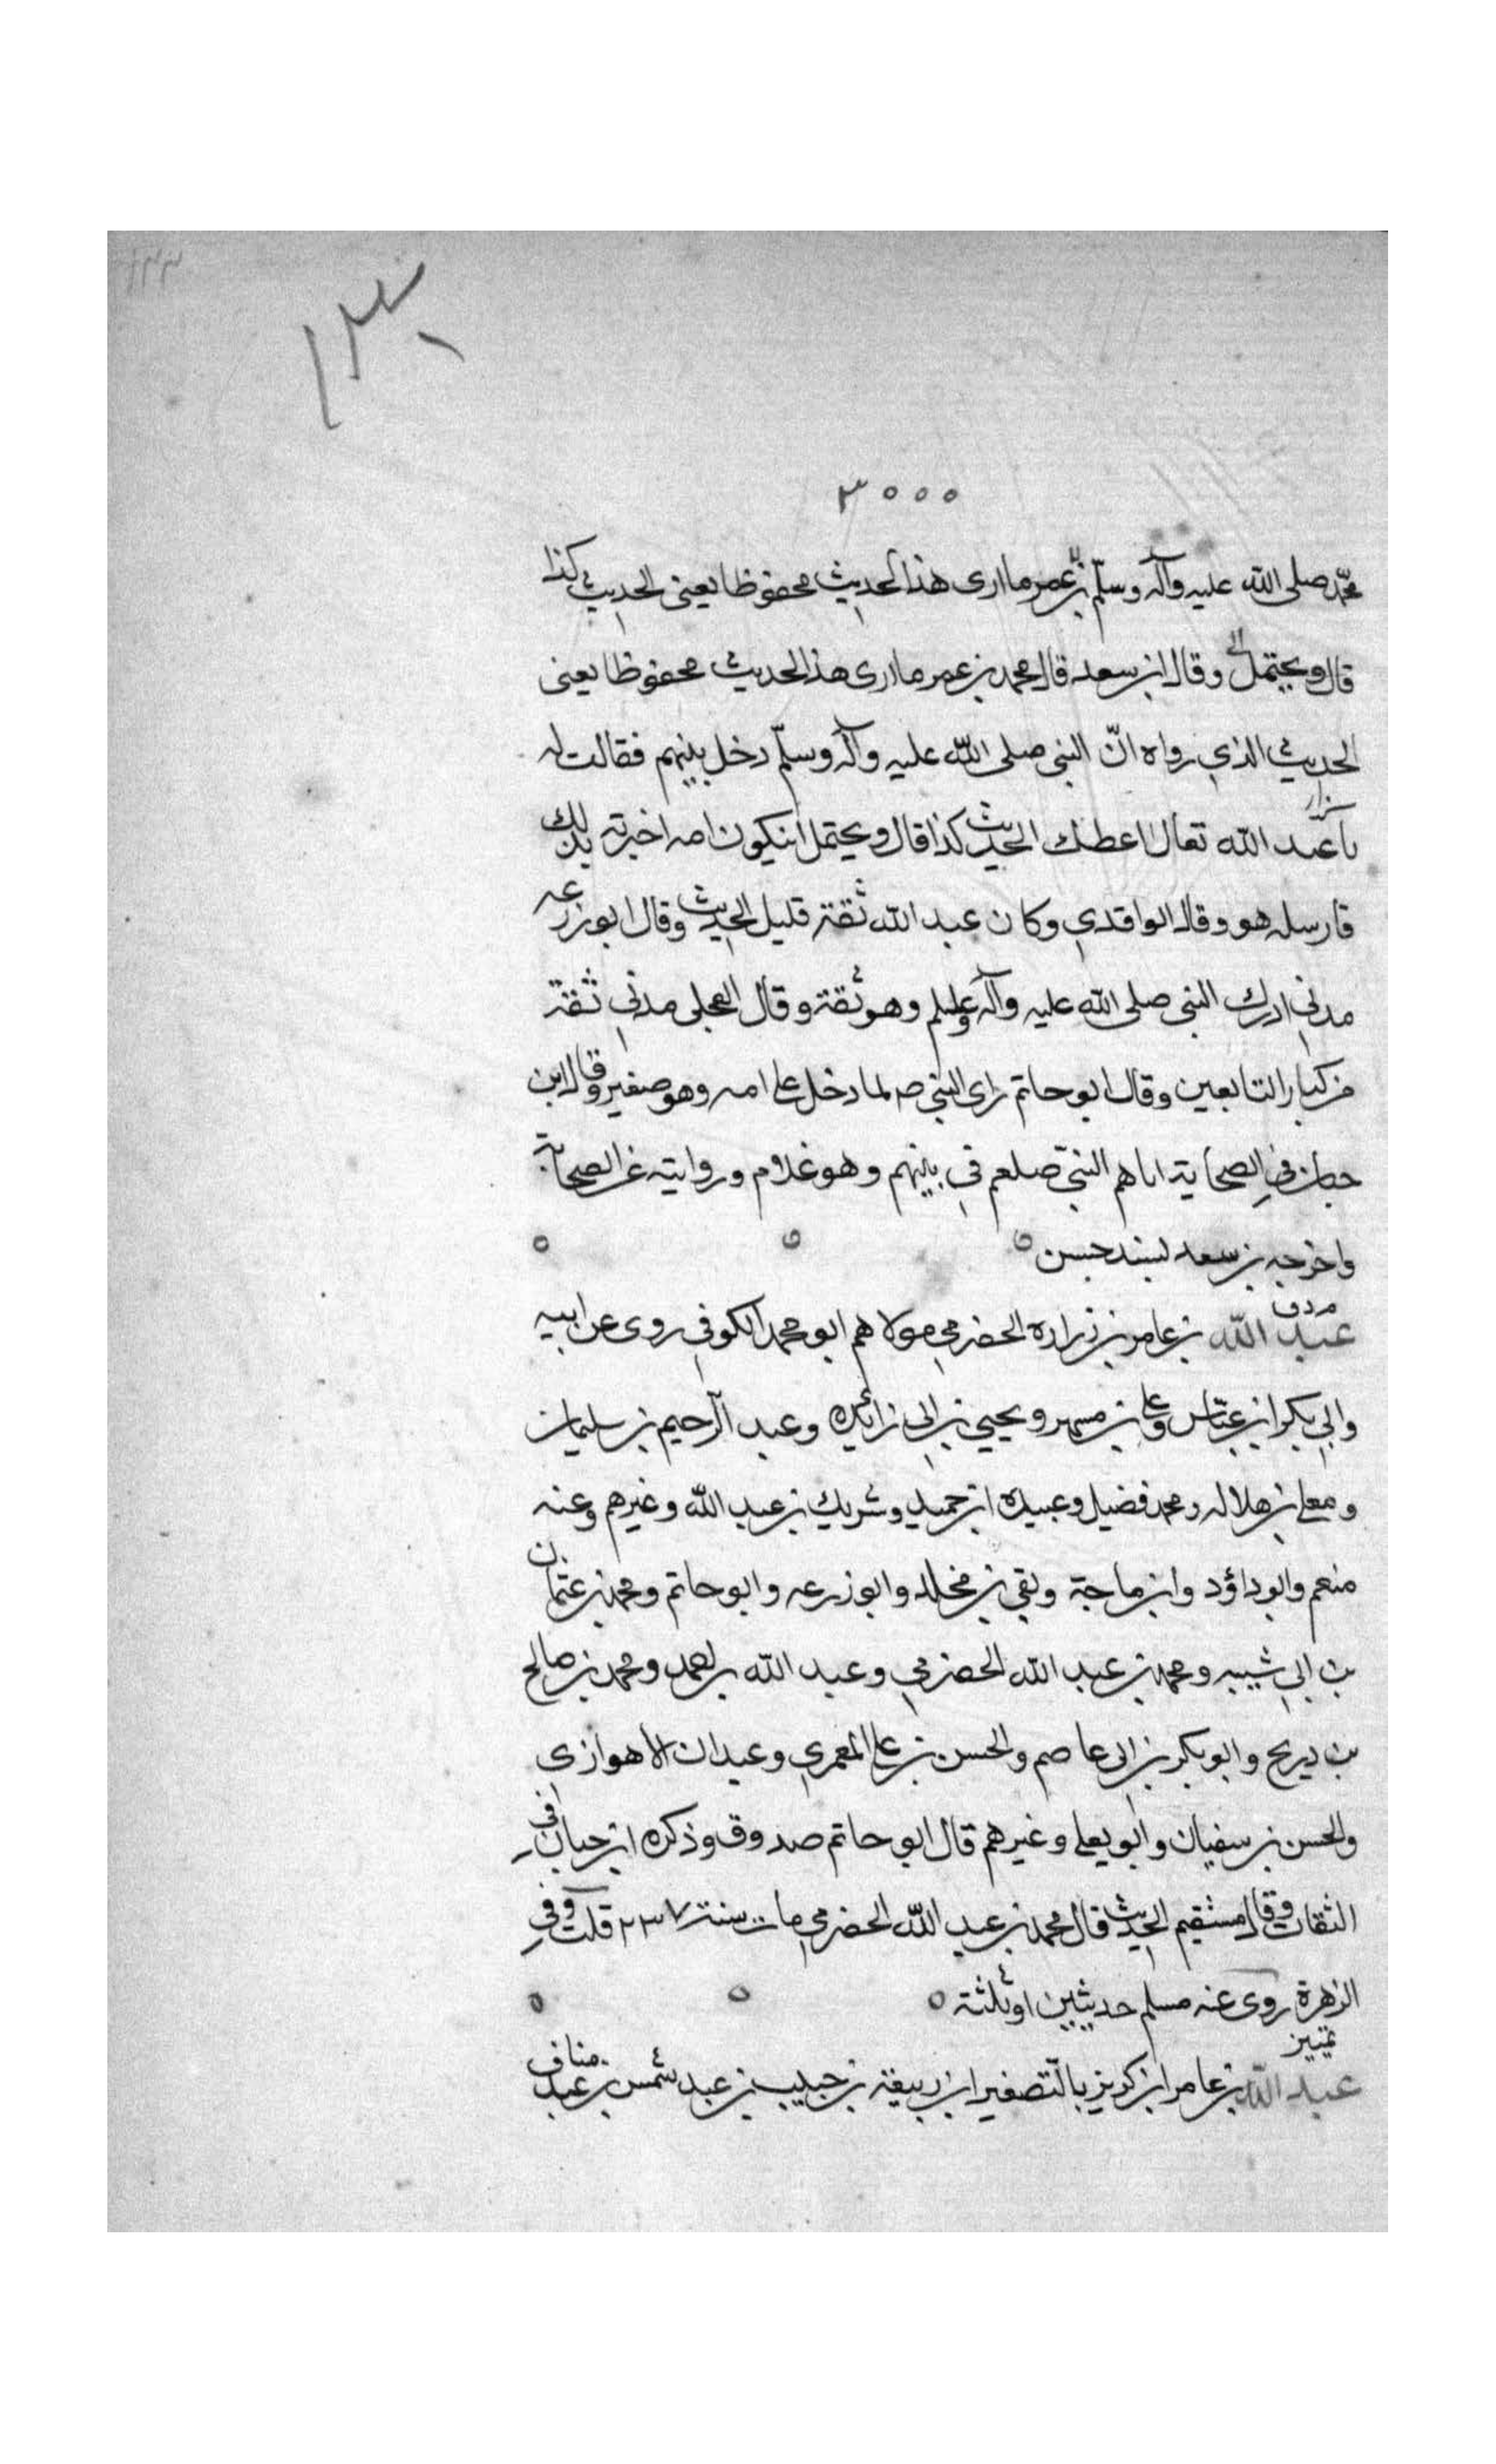 ١٣٠
٣٠٠٠
محمد صلى الله عليه وآله وسلم بن عمر ما ارى هذا الحديث محفوظا يعنى الحديث كذا
قال ويحتمل وقال ابن سعد قال محمد بن عمر ما ارى هذا الحديث محفوظا يعنى
الحديث الذي رواه انّ النبى صلى الله عليه وآله وسلّم دخل بينهم فقالت له
يا عبد الله تعال اعطك الحديث كذا قال ويحتمل انيكون امه اخبرته بذلك
فارسله هو وقال الواقدي وكان عبد الله ثقة قليل الحديث وقال ابو زرعه
مدني ادرك النبى صلى الله عليه وآله وسلم وهو ثقة وقال العجلى مدني ثقة
من كبار التابعين وقال ابو حاتم راى النبي ص لما دخل على امه وهو صغير وقال ابن
حبان في الصحابة اتاهم النبي صلعم في بيتهم وهو غلام وروايته عن الصحابة
واخرجه بن سعد بسند حسن
م د ق
عبد الله بن عامر بن زراره الحضرمي مولاهم ابو محمد الكوفي روى عن ابيه
وابي بكر ابن عيّاش وعلي بن مسهر ويحيي بن ابي زائده وعبد الرحيم بن سليمان
ومعلى بن هلال ومحمد فضيل وعبيده ابن حميد وشريك بن عبد الله وغيرهم وعنه
منعم وابوداؤد وابن ماجة وبقي بن مخلد وابو زرعه وابو حاتم ومحمد بن عثمان
بن ابي شيبه ومحمد بن عبد الله الحضرمي وعبد الله بن احمد ومحمد بن صالح
بن ذريح وابو بكر بن ابى عاصم والحسن بن على المعمري وعبدان الاهوازى
والحسن بن سفيان وابو يعلى وغيرهم قال ابو حاتم صدوق وذكره ابن حبان في
الثقات وقال مستقيم الحديث قال محمد بن عبد الله الحضرمي مات سنة ٢٣٧ قلت وفي
الزهرة روى عنه مسلم حديثين او ثلثة
تمييز
عبد الله بن عامر ابن كريز بالتّصغير ابن ربيعة بن حبيب بن عبد شمس بن عبد مناف